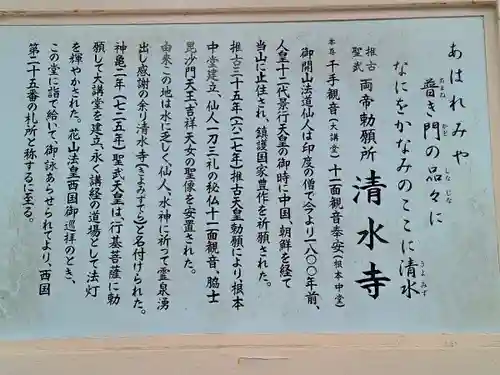 あはれみや
普き門の品々に
あまね かど しなじな
なにをかなみのここに清水
うよみず
推古
聖武
両帝勅願所 清水寺
本尊 千手観音(大講堂) 十一面観音奉安(根本中堂)
御開山法道仙人は印度の僧で今より一八〇〇年前、
人皇十二代景行天皇の御時に中国、朝鮮を経て
当山に止住され、鎮護国家豊作を祈願された。
推古三十五年(六二七年)推古天皇勅願により根本
中堂建立、仙人一刀三礼の秘仏十一面観音、脇士
毘沙門天王、吉祥天女の聖像を安置された。
由来この地は水に乏しく、仙人、水神に祈って霊泉湧
出し感謝の余り清水寺(きよみずでら)と名付けられた。
神亀二年(七二五年)聖武天皇は、行基菩薩に勅
願して大講堂を建立、永く講経の道場として法灯
を輝やかされた。花山法皇西国御巡拝のとき、
この堂に詣て給いて、御詠あらせられてより、西国
第二十五番の札所と称するに至る。